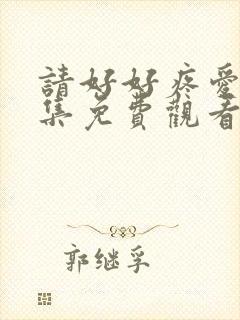 請好好疼愛
集免費觀看
郭继孚